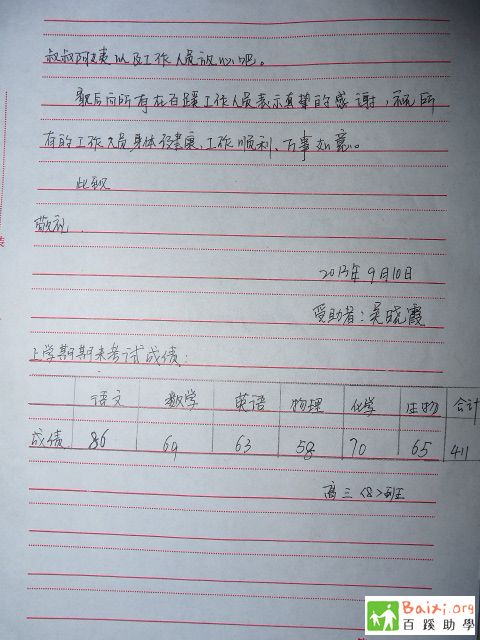 叔叔阿姨以及工作人员放心吧。
最后向所有在百蹊工作人员表示真挚的感谢,祝所
有的工作人员身体健康、工作顺利、万事如意。
此致
敬礼
2013年9月10日
受助者:吴晓霞
上学期期末考试成绩:
语文 数学 英语 物理 化学 生物 合计
成绩 86 69 63 58 70 65 411
高三〈8〉班
Baixi.org
百蹊助學